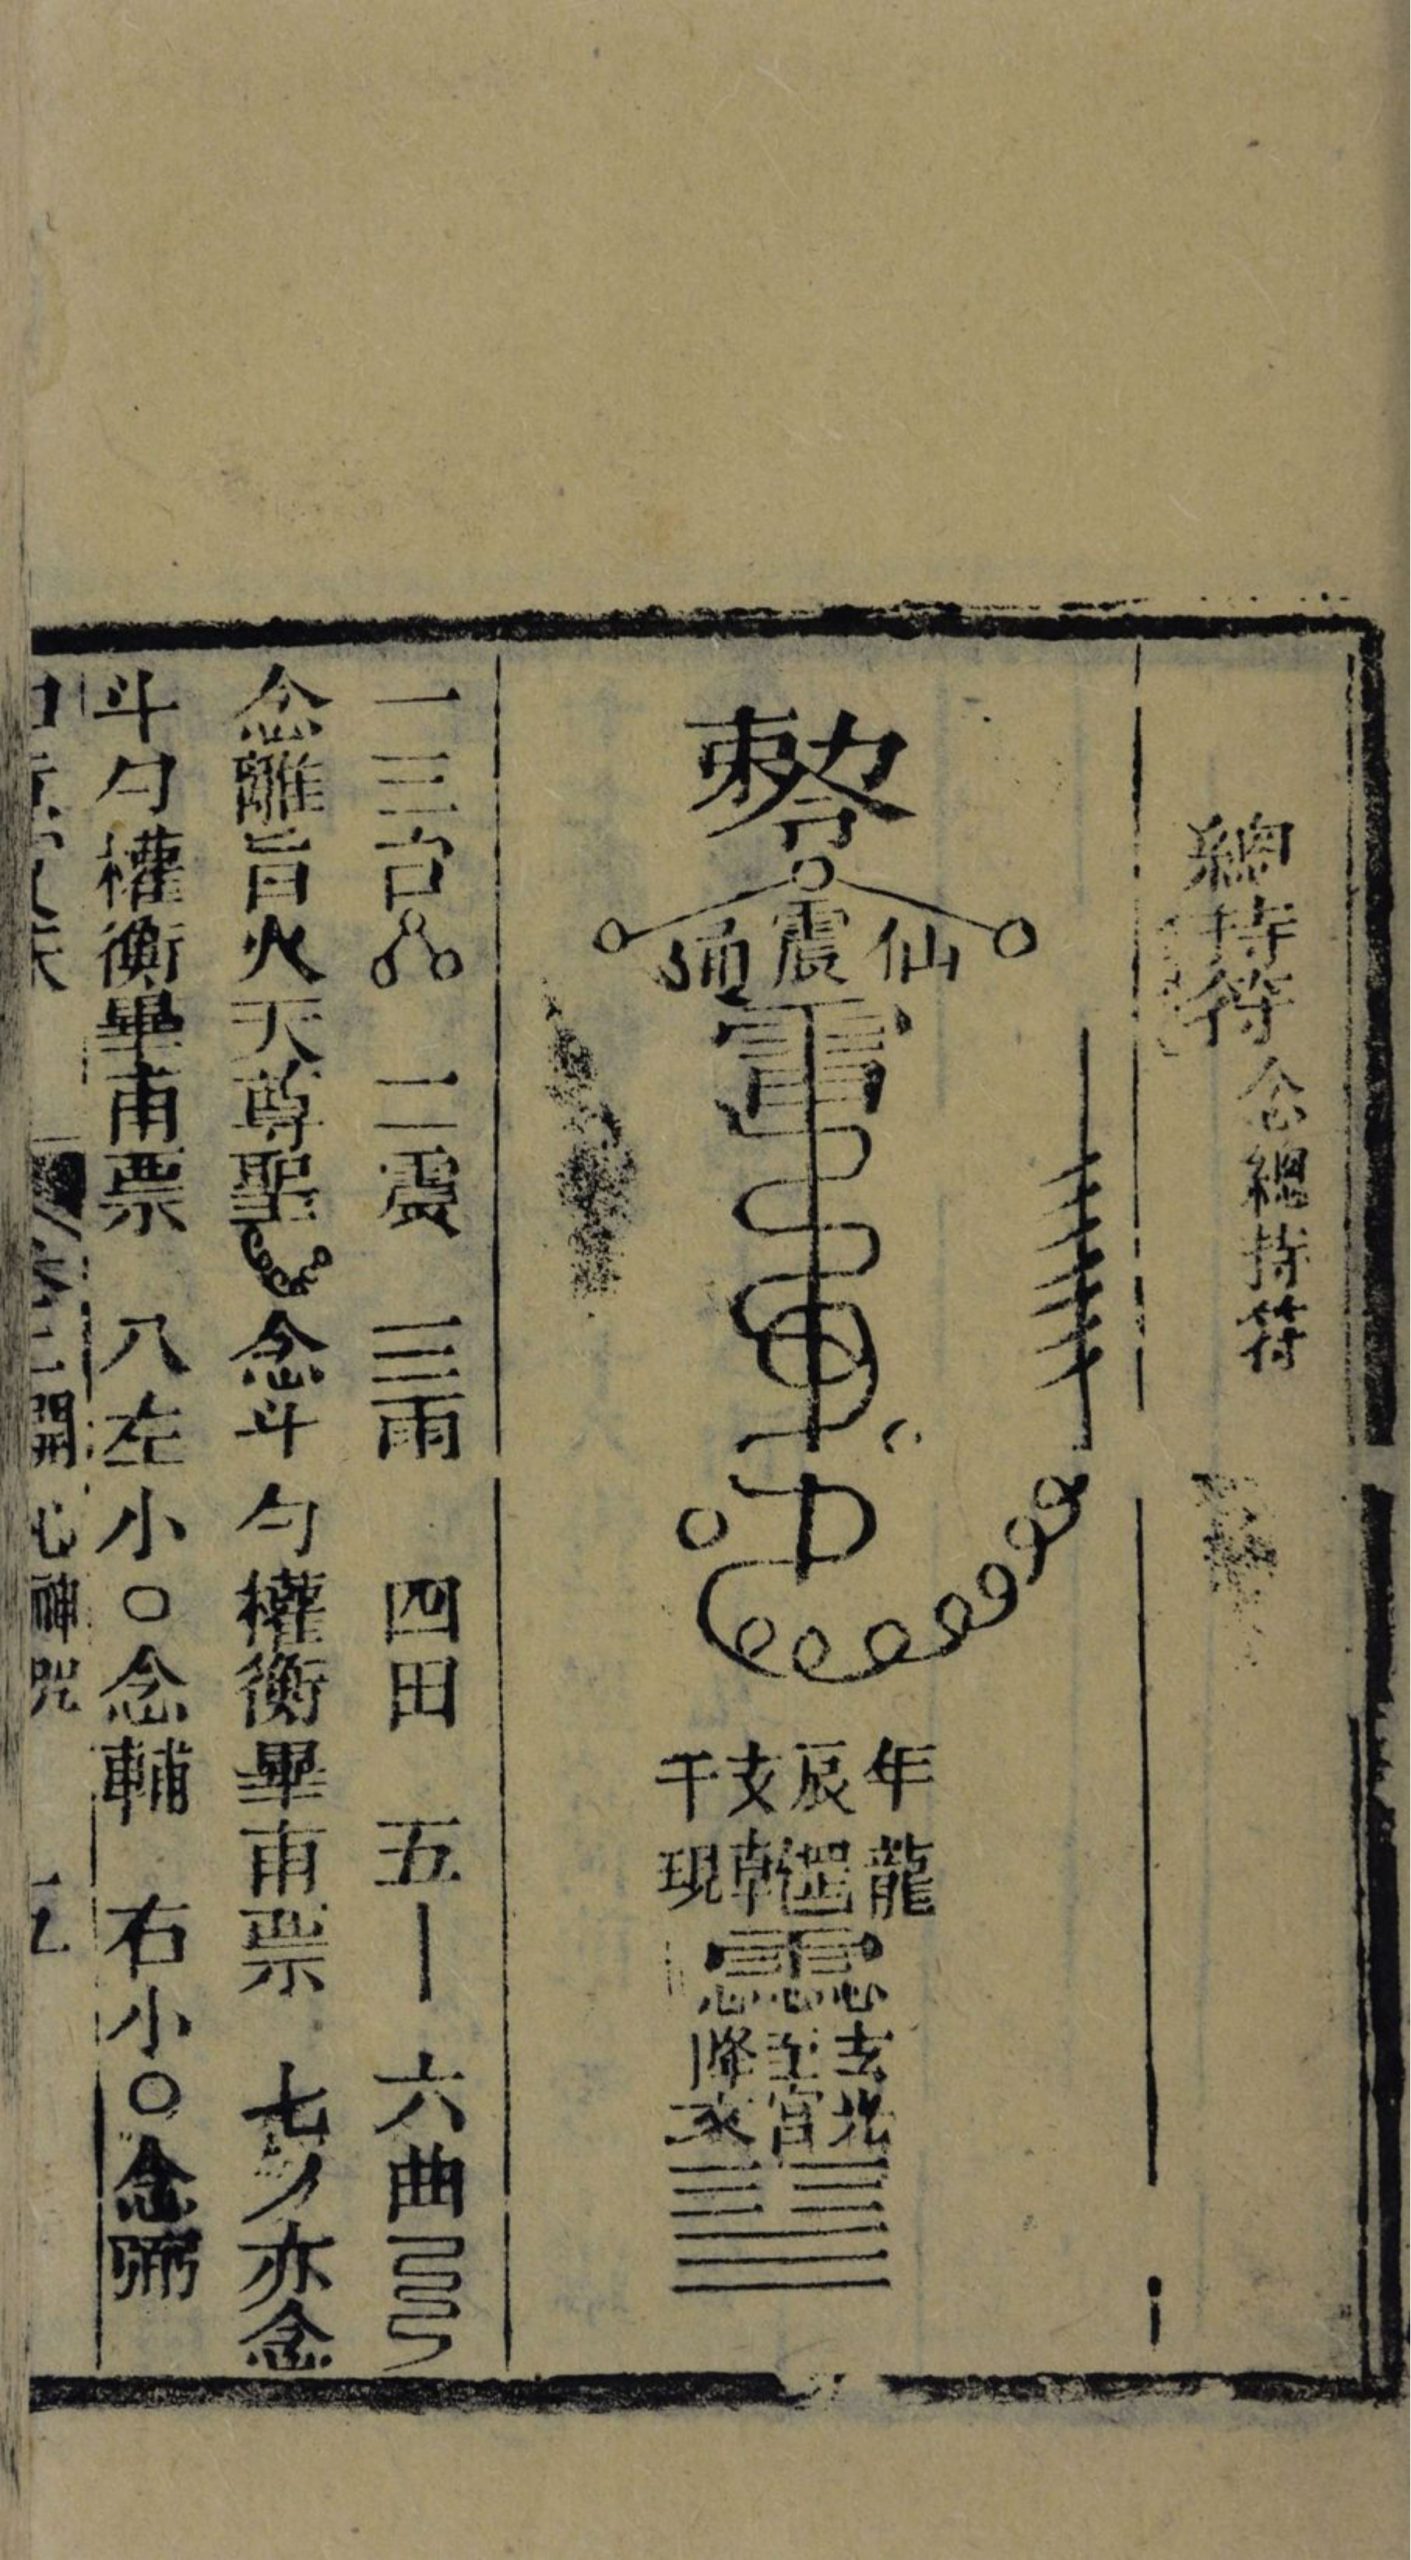 總持符 念總持符
敕令
通震仙
雷
年辰支干
龍 朝現
玄至降
宮
一三台 二震 三雨 四田 五丨 六曲
念離旨火天尊聖 念斗勺權衡畢甫票 七丿亦念
斗勺權衡畢甫票 八左小〇念輔 右小〇念弼
開心神咒